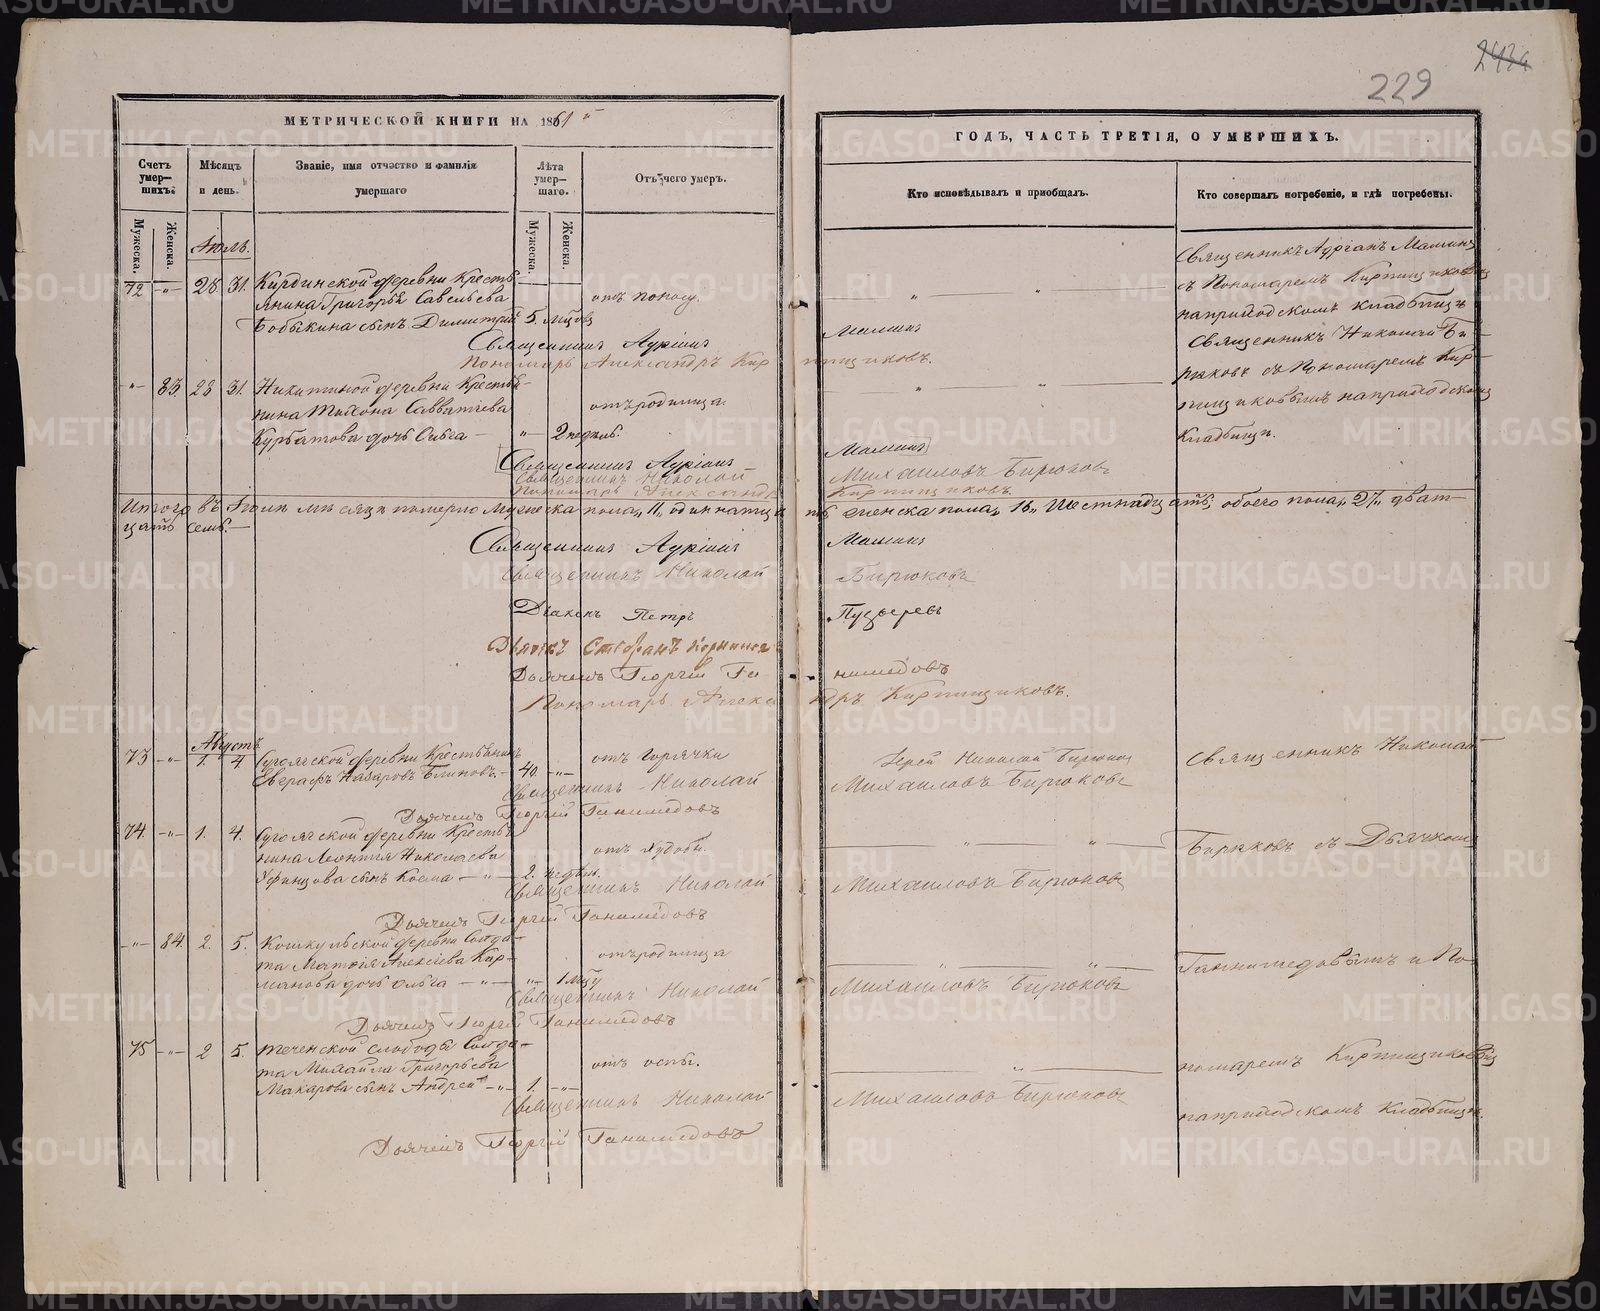 229
МЕТРИЧЕСКОЙ КНИГИ НА 1861 й
ГОДЪ, ЧАСТЬ ТРЕТІЯ, О УМЕРШИХЪ.
Счетъ умер-шихъ.
Мѣсяцъ и день.
Званіе, имя отчество и фамилія умершаго
Лѣта умер-шаго.
Отъ чего умеръ.
Кто исповѣдывалъ и пріобщалъ.
Кто совершалъ погребеніе, и гдѣ погребены.
Мужеска.
Женска.
Мужеска.
Женска.
Іюль.
72 -"- 28 31. Кирдинской деревни Кресть-
янина Григорья Савельева отъ поносу.
Бобыкина сынъ Димитрій 5. мѣсяцъ
Священникъ Адріанъ Маминъ
Пономарь Александръ Кирпищиковъ.
Священникъ Адріанъ Маминъ
съ Пономаремъ Кирпищиковымъ
на приходскомъ кладбищѣ
-"- 83. 23 31. Никитиной деревни Кресть-
нина Тихона Савватіева отъ родимца.
Курбатова дочь Ольга -"- 2 недѣль.
Священникъ Адріанъ Маминъ
Священникъ Николай Михаиловъ Бирюковъ
Пономарь Александръ Кирпищиковъ
Священникъ Николай Би-
рюковъ съ Пономаремъ Кир-
пищиковымъ на приходскомъ
кладбищѣ.
Итого въ Іюлѣ мѣсяцѣ померло мужеска пола „11„ одиннатцать женска пола „16„ Шестнадцать, обоего пола „27„ дват-
цать семь.
Священникъ Адріанъ Маминъ
Священникъ Николай Бирюковъ
Діаконъ Петръ Пузыревъ
Дьячекъ Стефанъ
Дьячекъ Георгій Ганимедовъ
Пономарь Александръ Кирпищиковъ.
Августъ
73 -"- 1. 4. Сугоякской деревни Крестьянинъ отъ Горячки Іерей Николай Бирюковъ
Евграфъ Назаровъ Блиновъ. 40. -"-
Священникъ Николай Михаиловъ Бирюковъ
Дьячекъ Георгій Ганимедовъ
Священникъ Николай
74. -"- 1. 4. Сугоякской деревни Кресть-
нина Леонтія Николаева отъ худобы.
Уфинцова сынъ Косма -"- 2. недѣли.
Священникъ Николай Михаиловъ Бирюковъ
Дьячекъ Георгій Ганимедовъ
Бирюковъ съ Дьячкомъ
-"- 84. 2. 5. Кошкульской деревни Солда-
та Матвія Алексіева Кар- отъ родимца
манова дочь Ольга -"- 1 мѣсяцу
Священникъ Николай Михаиловъ Бирюковъ
Дьячекъ Георгій Ганимедовъ
Ганимедовымъ и По-
75 -"- 2 5. Теченской слободы Солда-
та Михаила Григорьева отъ оспы.
Макарова сынъ Андрей -"- 1. -"-
Священникъ Николай Михаиловъ Бирюковъ
Дьячекъ Георгій Ганимедовъ
номаремъ Кирпищиковымъ
на приходскомъ кладбищѣ.
METRIKI.GASO-URAL.RU